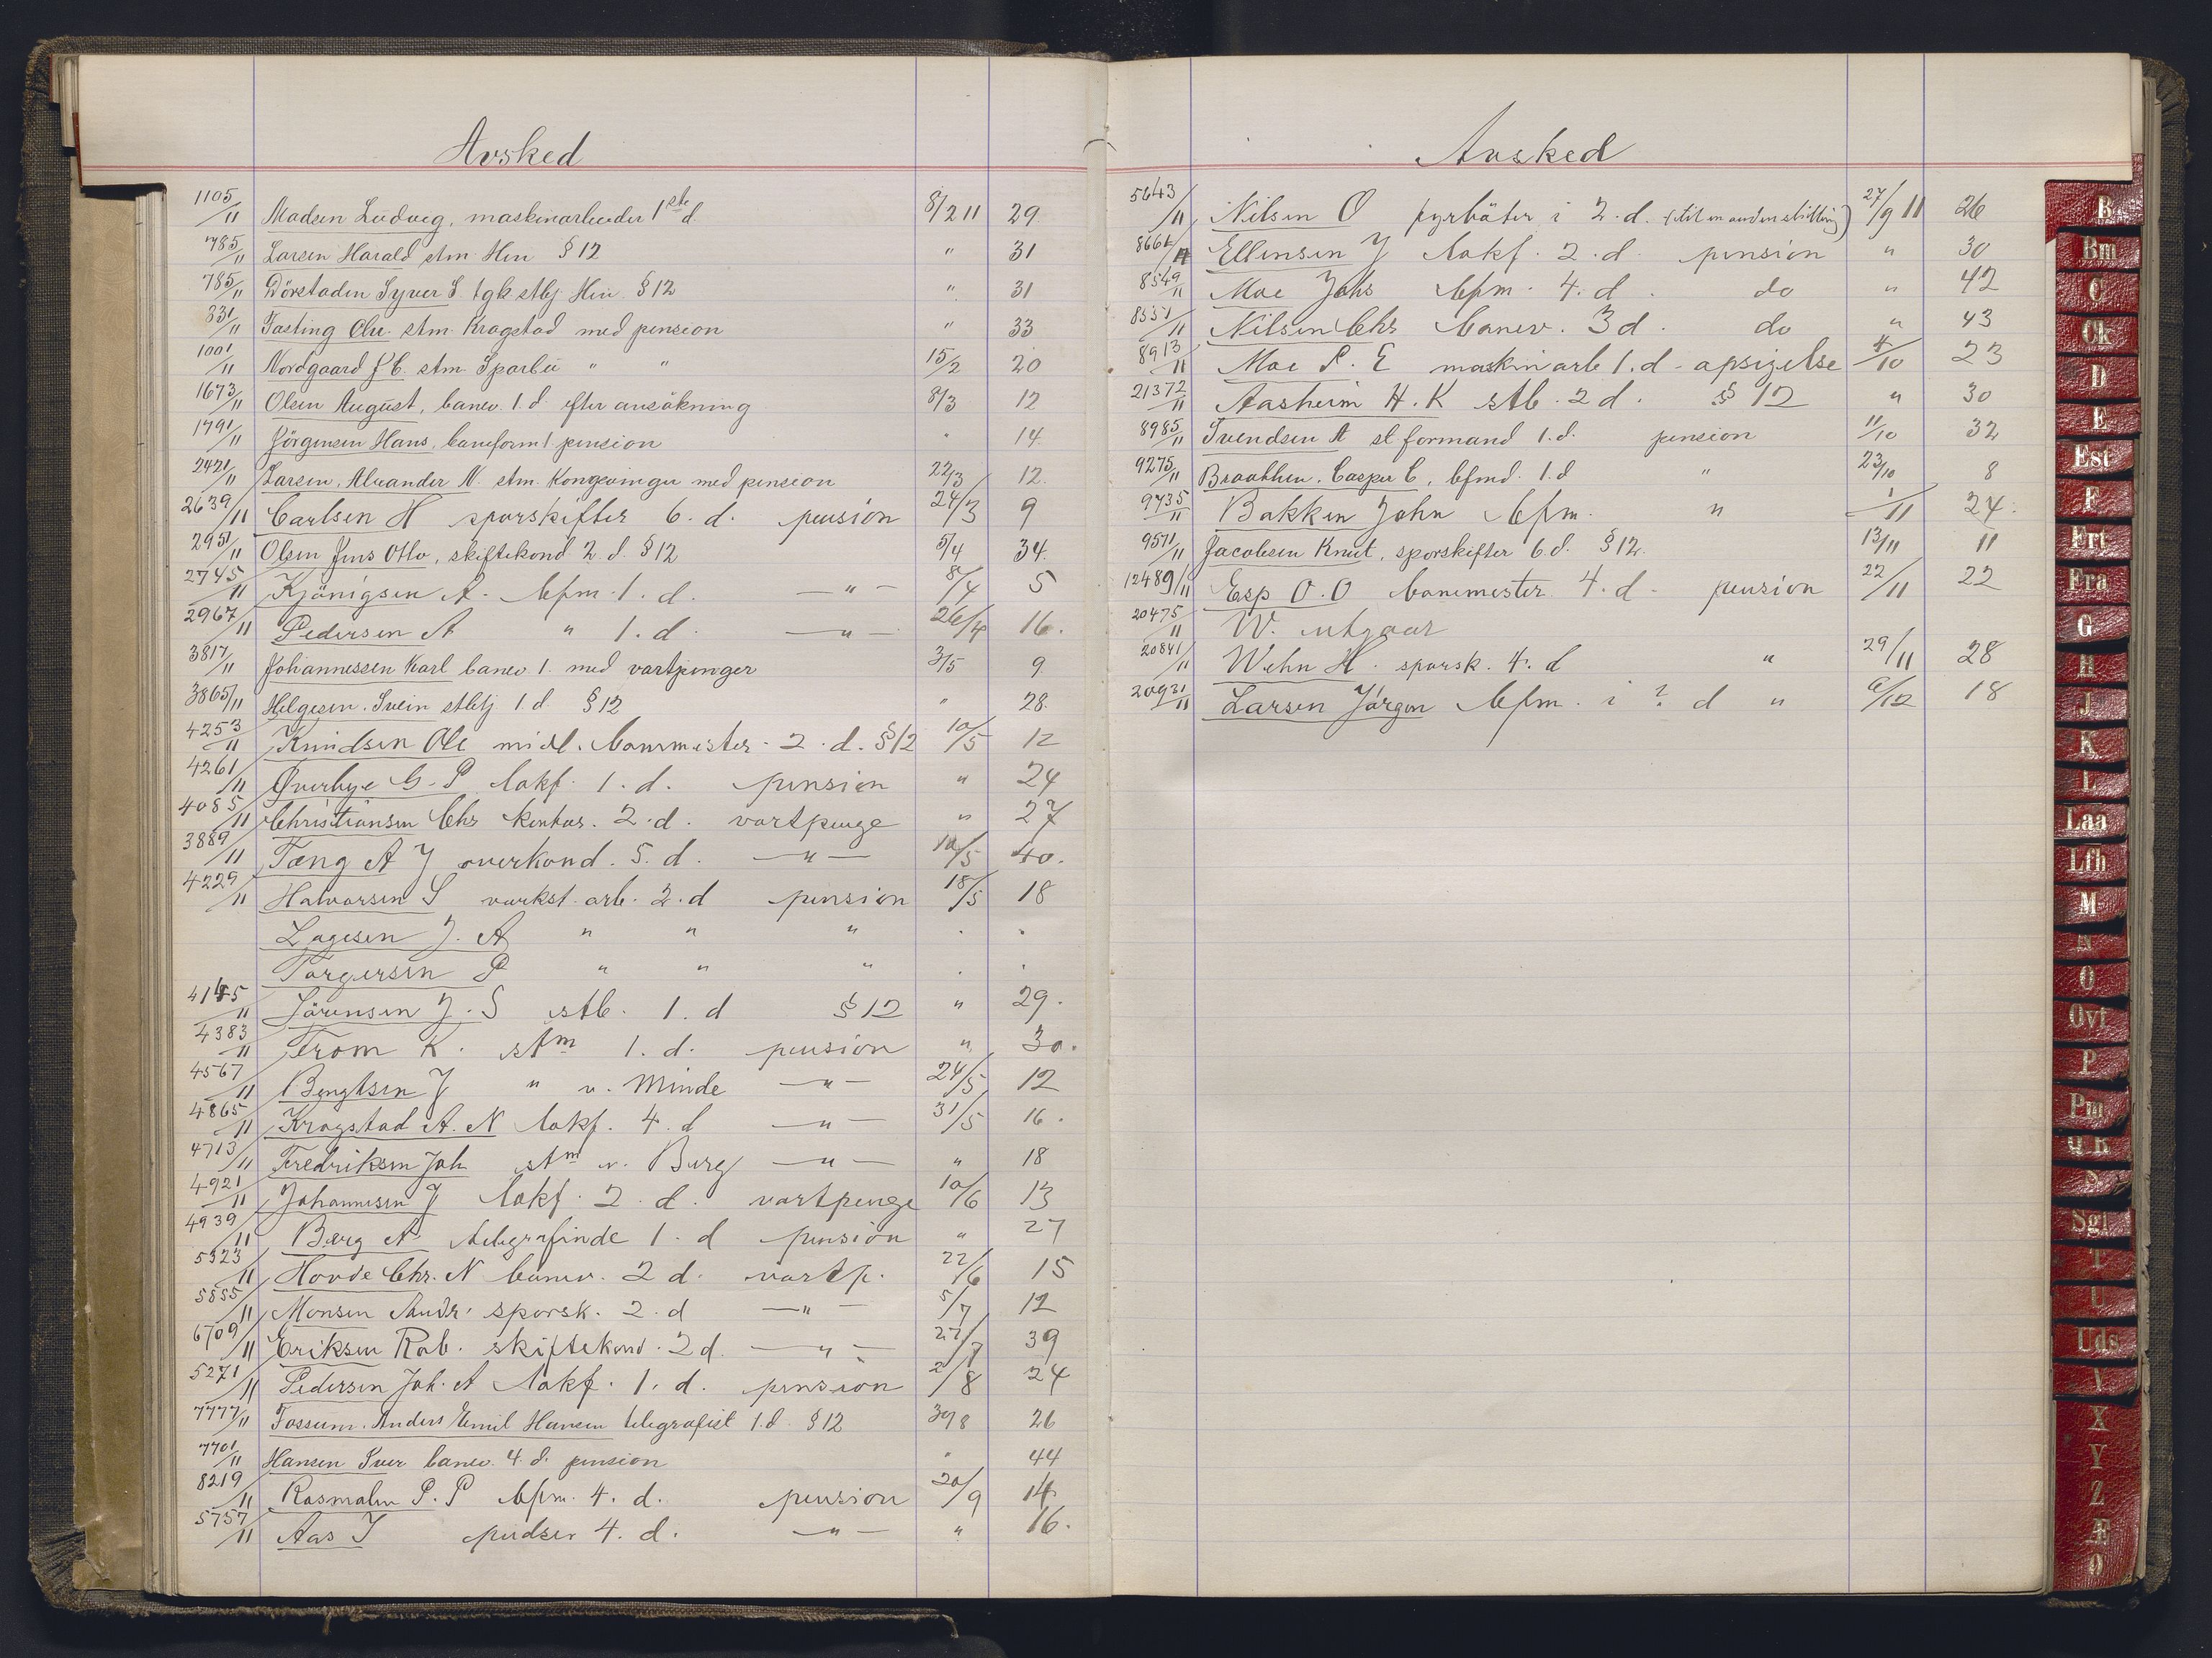 Avsked
1105/11 Madsen Ludvig, maskinarbeider 1ste d. 8/2 11 29.
785/11 Larsen Harald stm. Hm § 12 " 31
785/11 Dörstaden Syver S. tgk stbj Hm § 12 " 31
831/11 Fasting Chr. stm. Kragstad med pension " 33
1001/11 Nordgaard J C. stm. Sparbu " " 15/2 20
1673/11 Olsen August, banev. 1. d. efter ansökning 8/3 12
1791/11 Jörgensen Hans, baneform 1 pension " 14.
2421/11 Larsen, Alexander N. stm. Kongsvinger med pension 22/3 12.
2639/11 Carlsen H sporskifter 6. d. pension 24/3 9
2951/11 Olsen Jens Otto, skiftekond 2. d. § 12 5/4 34.
2745/11 Kjönigsen A. bfm. 1. d. — " — 8/4 5
2967/11 Pedersen A " 1. d. — " — 26/4 16.
3817/11 Johannessen Karl banev. 1. med vartpenger 3/5 9.
3865/11 Helgesen, Svein stbtj. 1 d. § 12 " 28.
4253/11 Knudsen Ole midl. banemester. 2. d. § 12 10/5 12
4261/11 Överbye G. P. lokf. 1. d. pension " 24
4085/11 Christiansen Chr kontor. 2. d. vartpenge " 27
3889/11 Tæng A J overkond. 5. d. — " — 10/5 40.
4229/11 Halvorsen S verkst. arb. 2. d pension 18/5 18
Lagesen J. A " " " . .
Torgersen P " " " . .
4165/11 Sörensen J. S stb. 1. d § 12 " 29.
4383/11 From K. stm 1. d. pension " 30.
4567/11 Bengtsen J " v. Minde — " — 24/5 12
4865/11 Krogstad A. N lokf. 4. d — " — 31/5 16.
4713/11 Fredriksen Joh stm v. Burg — " — " 18
4921/11 Johannesen J lokf. 2. d. vartpenge 10/6 13
4939/11 Berg N. telegrafinde 1. d pension " 27
5323/11 Hovde Chr. N banev. 2 d. vartp. 22/6 15
5555/11 Monsen Andr. sporsk. 2. d — " — 5/7 12
6709/11 Eriksen Rob. skiftekond. 2 d. — " — 27/7 39
5271/11 Pedersen Joh. A lokf. 1. d. pension 2/8 24
7777/11 Fossum, Anders Emil Hansen telegrafist 1. d. § 12 30/8 26
7701/11 Hansen Iver banev. 4. d. pension " 44
8219/11 Rosmalen P. P bfm. 4. d. pension 20/9 14.
5757/11 Aas J pudser 4. d. — " — " 16.
Avsked
5643/11 Nilsen O fyrböter i 2. d. (til en anden stilling) 27/9 11 26
8661/11 Ellensen J lokf. 2. d. pension " 30
8549/11 Moe Johs bfm. 4. d. do " 42
8551/11 Nilsen Chr banev. 3 d. do " 43
8913/11 Moe P. E maskinarb 1. d - opsigelse 4/10 23
21372/11 Aasheim H. K stb. 2 d. § 12 " 30
8985/11 Svendsen A st formand 1. d. pension 11/10 32
9275/11 Braathen, Casper C, bfmd. 1. d " 23/10 8
9735/11 Bakken John bfm. " 1/11 24.
9571/11 Jacobsen Knut, sporskifter 6. d. § 12. 13/11 11
12489/11 Esp O. O banemester 4. d. pension 22/11 22
20475/11 W. utgaar
20841/11 Wehn H. sporsk. 4. d " 29/11 28
20931/11 Larsen Jörgen bfm. i 2. d " 6/12 18
B
Bm
C
Ck
D
E
Est
F
Frt
Fra
G
H
J
K
L
Laa
Lfh
M
N
O
Ovt
P
Pm
Q R
S
Sgl
T
U
Uds
V
X
Y
Z
Æ
Ø